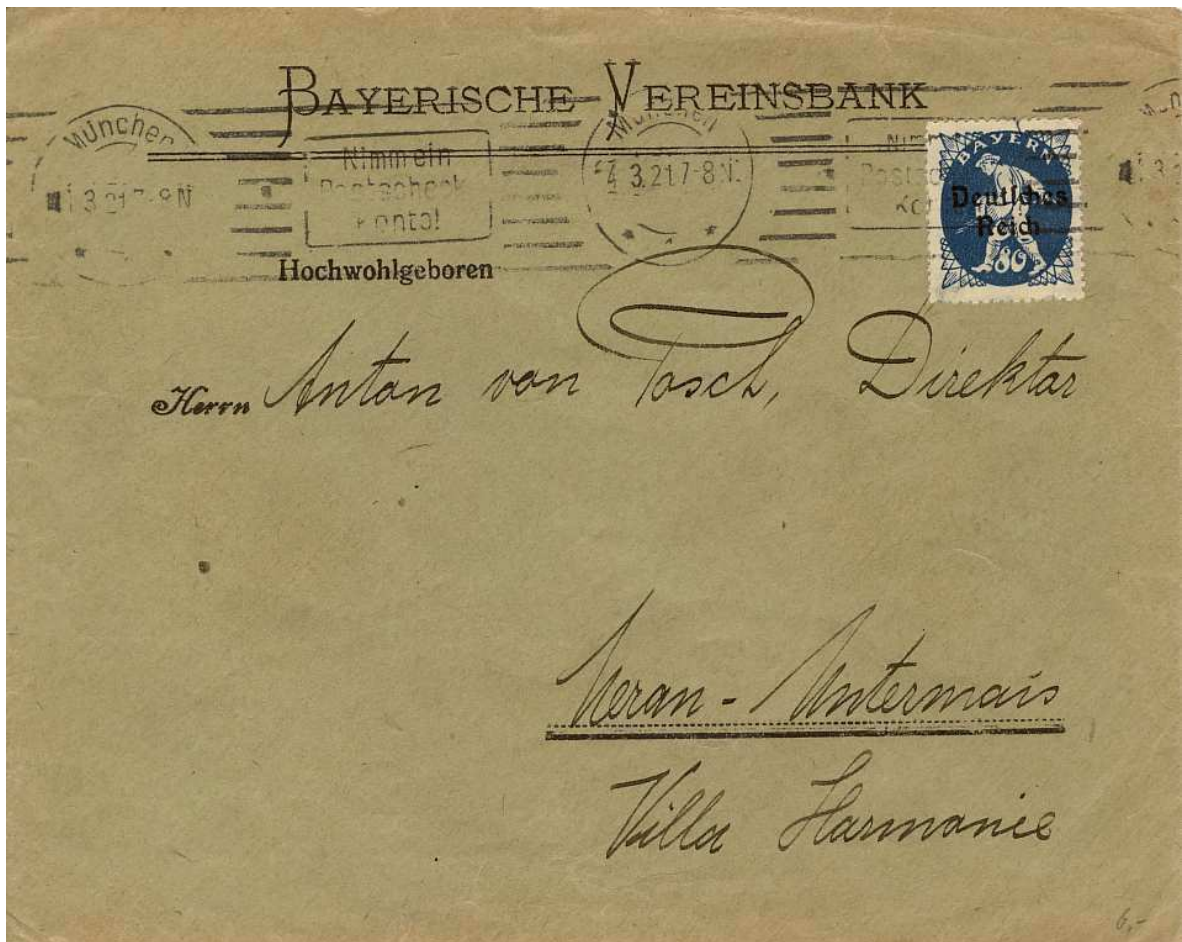 BAYERISCHE VEREINSBANK
München München
3.21.7-8N 3.21.7-8N.
Nimm ein
Postscheck
Konto!
BAYERN
Deutsches
Reich
80
Hochwohlgeboren
Herrn Anton von Posch, Direktor
Meran - Untermais
Villa Harmonie
6,-